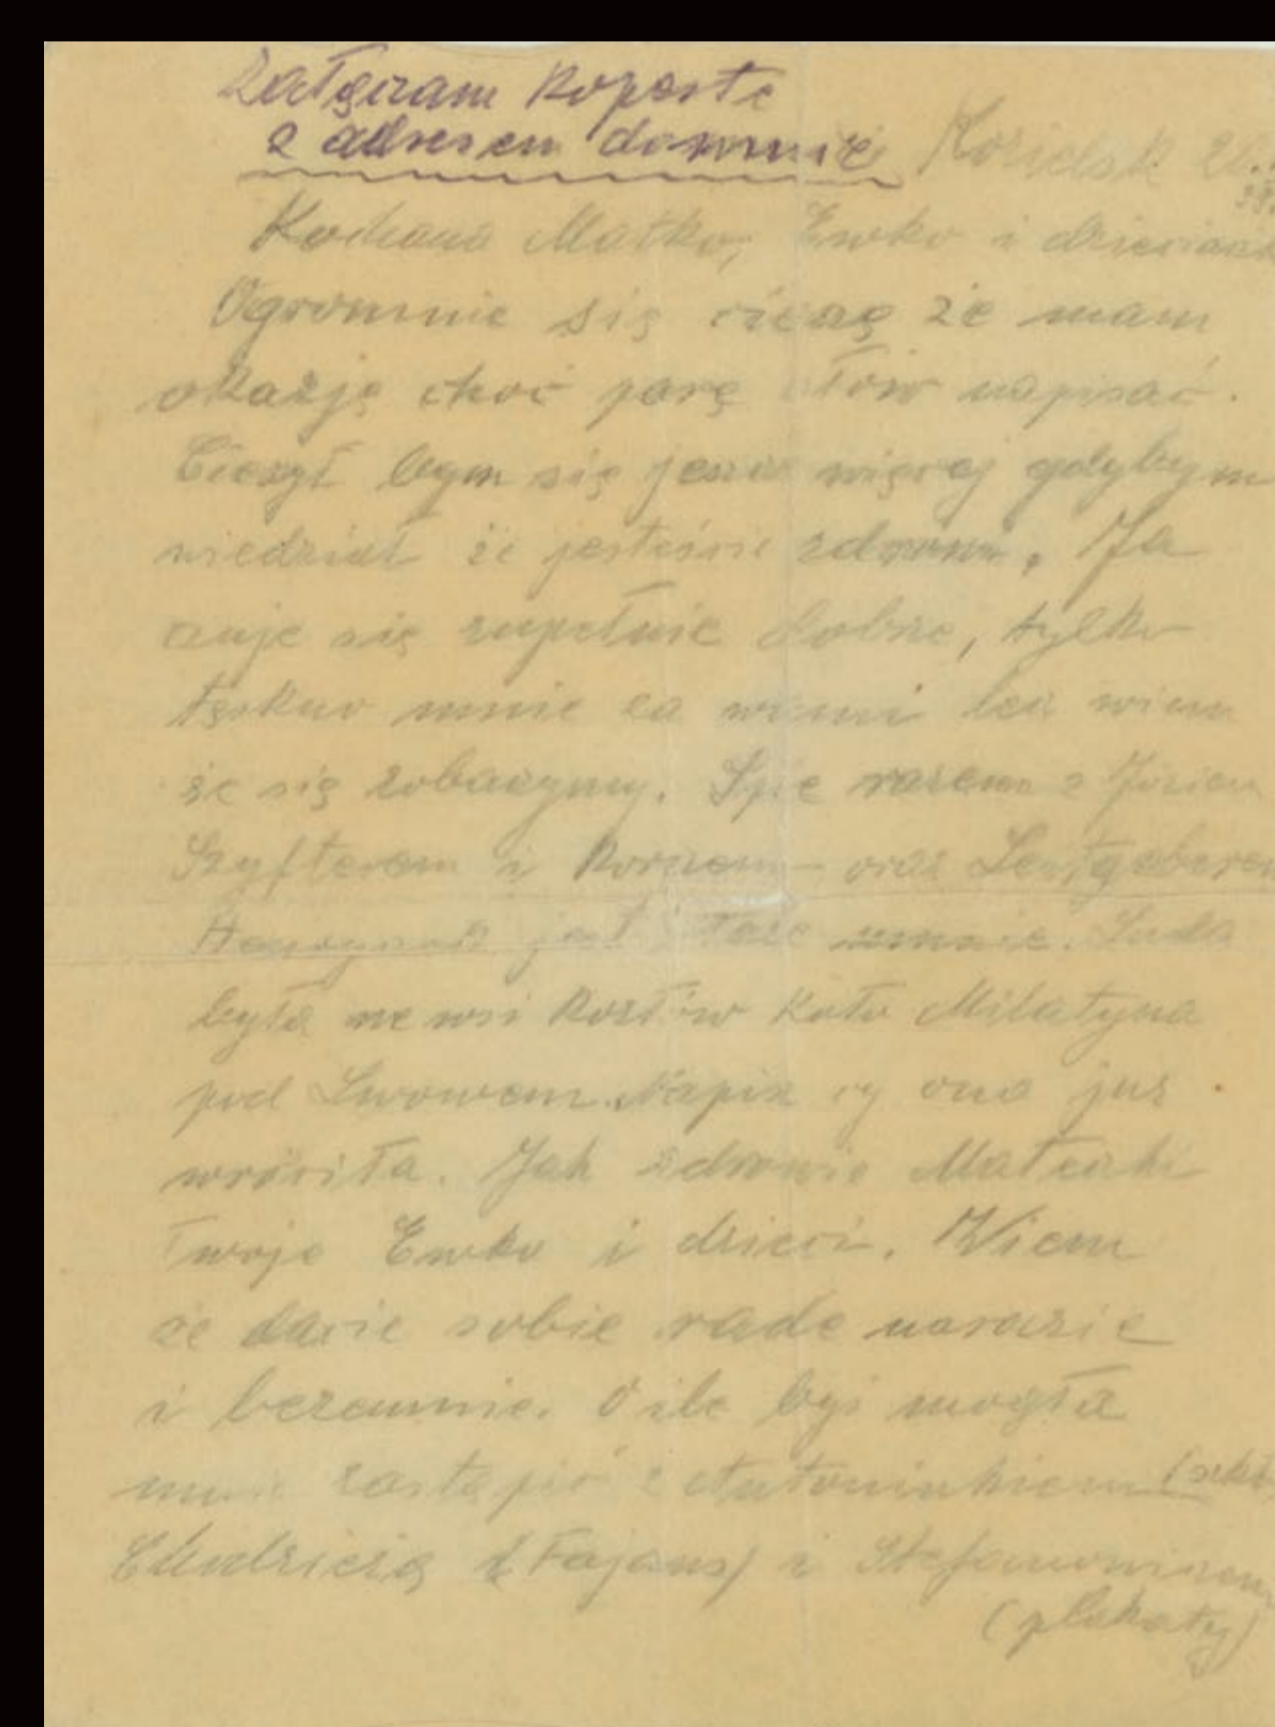 Załączam Kopertę
z adresem domu
Kozielsk 26.
Kochana Matko, Ewko i dzieciaki
Ogromnie się cieszę że mam
okazję choć parę słów napisać.
Cieszył bym się jeszcze więcej gdybym
wiedział że jesteście zdrowi. Ja
czuje się zupełnie dobrze, tylko
tęskno mnie za wami lecz wiem
że się zobaczymy. Śpie razem z Józiem
Szyfterem i - oraz
jest też Luda
była we wsi Kozłów Koło Milatyna
pod Lwowem. Napisz czy ona już
wróciła. Jak zdrowie Mateczki
Twoje Ewko i dzieci. Wiem
że dacie sobie rade narazie
i bezemnie. O ile byś mogła
mnie zastąpić z Antoninkiem
(Fajans) i Stefanowiczem
(plakaty)